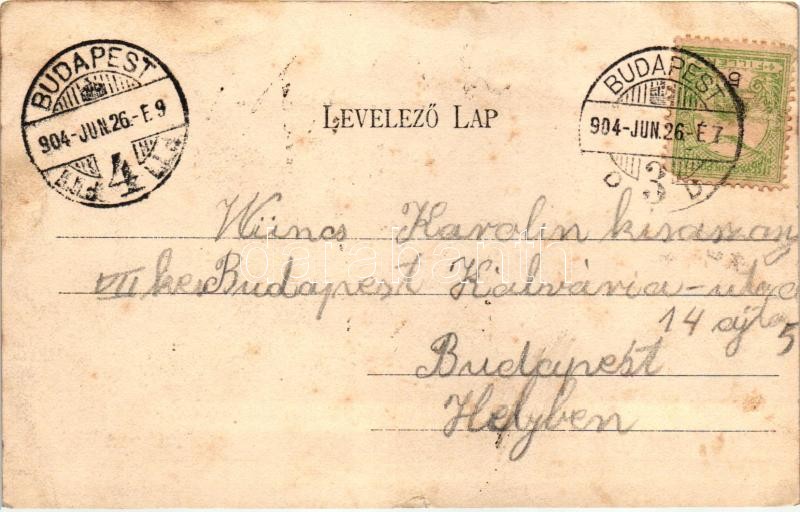 BUDAPEST
904-JUN.26.-E.9
4
BUDAPEST
904-JUN.26.-É7
3
LEVELEZŐ LAP
Wüncs Karolin kisasszony
VII ker Budapest Kálvária-utca
14 ajtó
5
Budapest
Helyben
darabanth